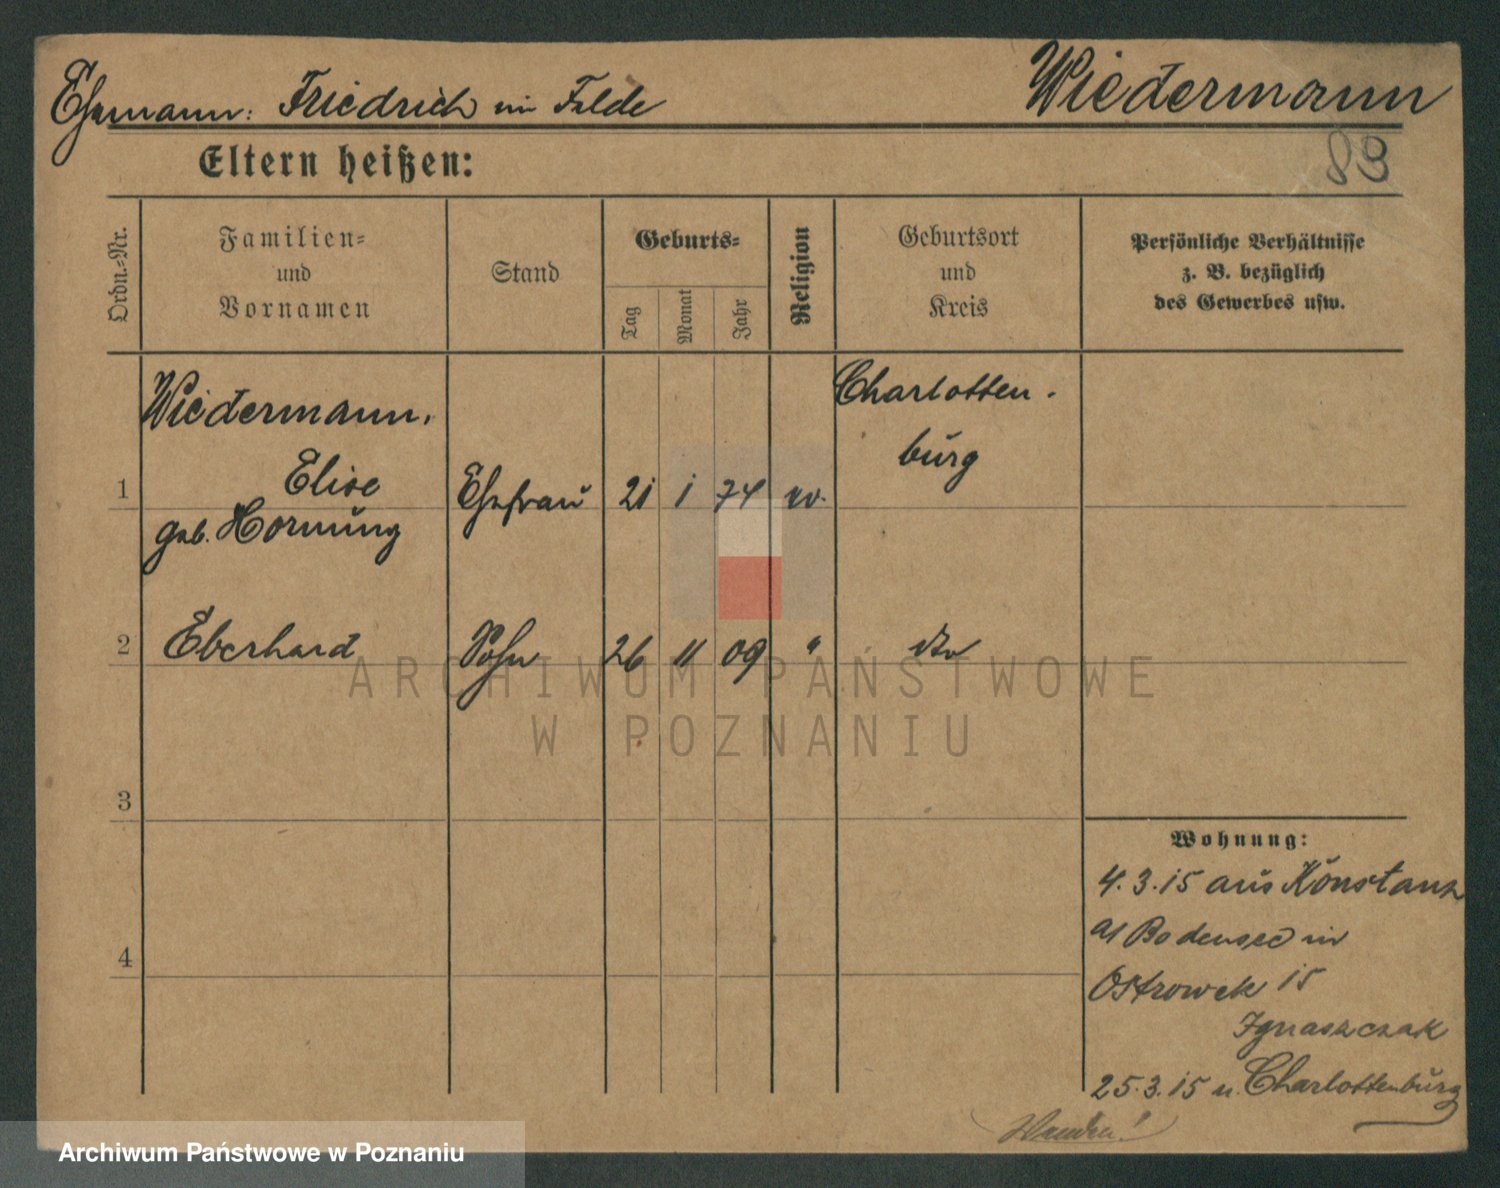 Ehemann: Friedrich im Felde
Wiedermann
83
Eltern heißen:
Ordn.-Nr.
Familien-
und
Vornamen
Stand
Geburts-
Tag
Monat
Jahr
Religion
Geburtsort
und
Kreis
Persönliche Verhältnisse
z. B. bezüglich
des Gewerbes usw.
Wiedermann.
Charlotten-
burg
1 Elise Ehefrau 21 1 74 ev.
geb. Hornung
2 Eberhard Sohn 26 11 09 " dto
ARCHIWUM PAŃSTWOWE
W POZNANIU
3
Wohnung:
4.3.15 aus Konstanz
a/ Bodensee in
4
Ostrowek 15
Ignaszczak
25.3.15 n. Charlottenburg
Archiwum Państwowe w Poznaniu